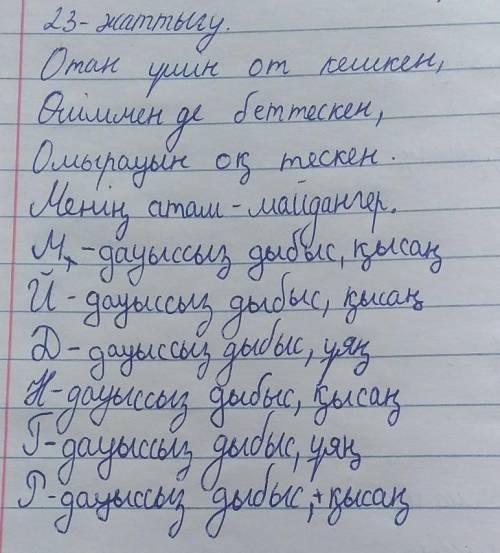 23-жаттыгу.
Отан үшін от кешкен,
Өліммен де беттескен,
Омырауын оқ тескен.
Менің атам - майдангер.
М, - дауыссыз дыбыс, қысаң
Й - дауыссыз дыбыс, қысаң
Д - дауыссыз дыбыс, ұяң
Н - дауыссыз дыбыс, қысаң
Г - дауыссыз дыбыс, ұяң
Р - дауыссыз дыбыс, + қысаң